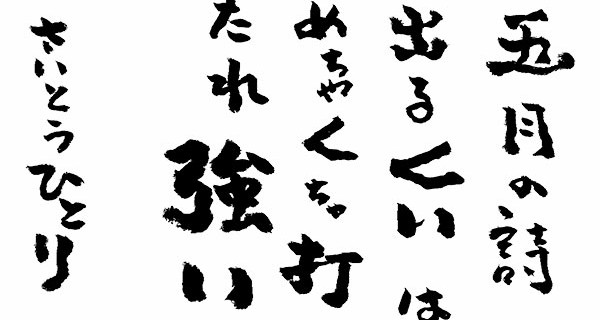 五月の詩
出るくいは
めちゃくちゃ打
たれ強い
さいとうひとり